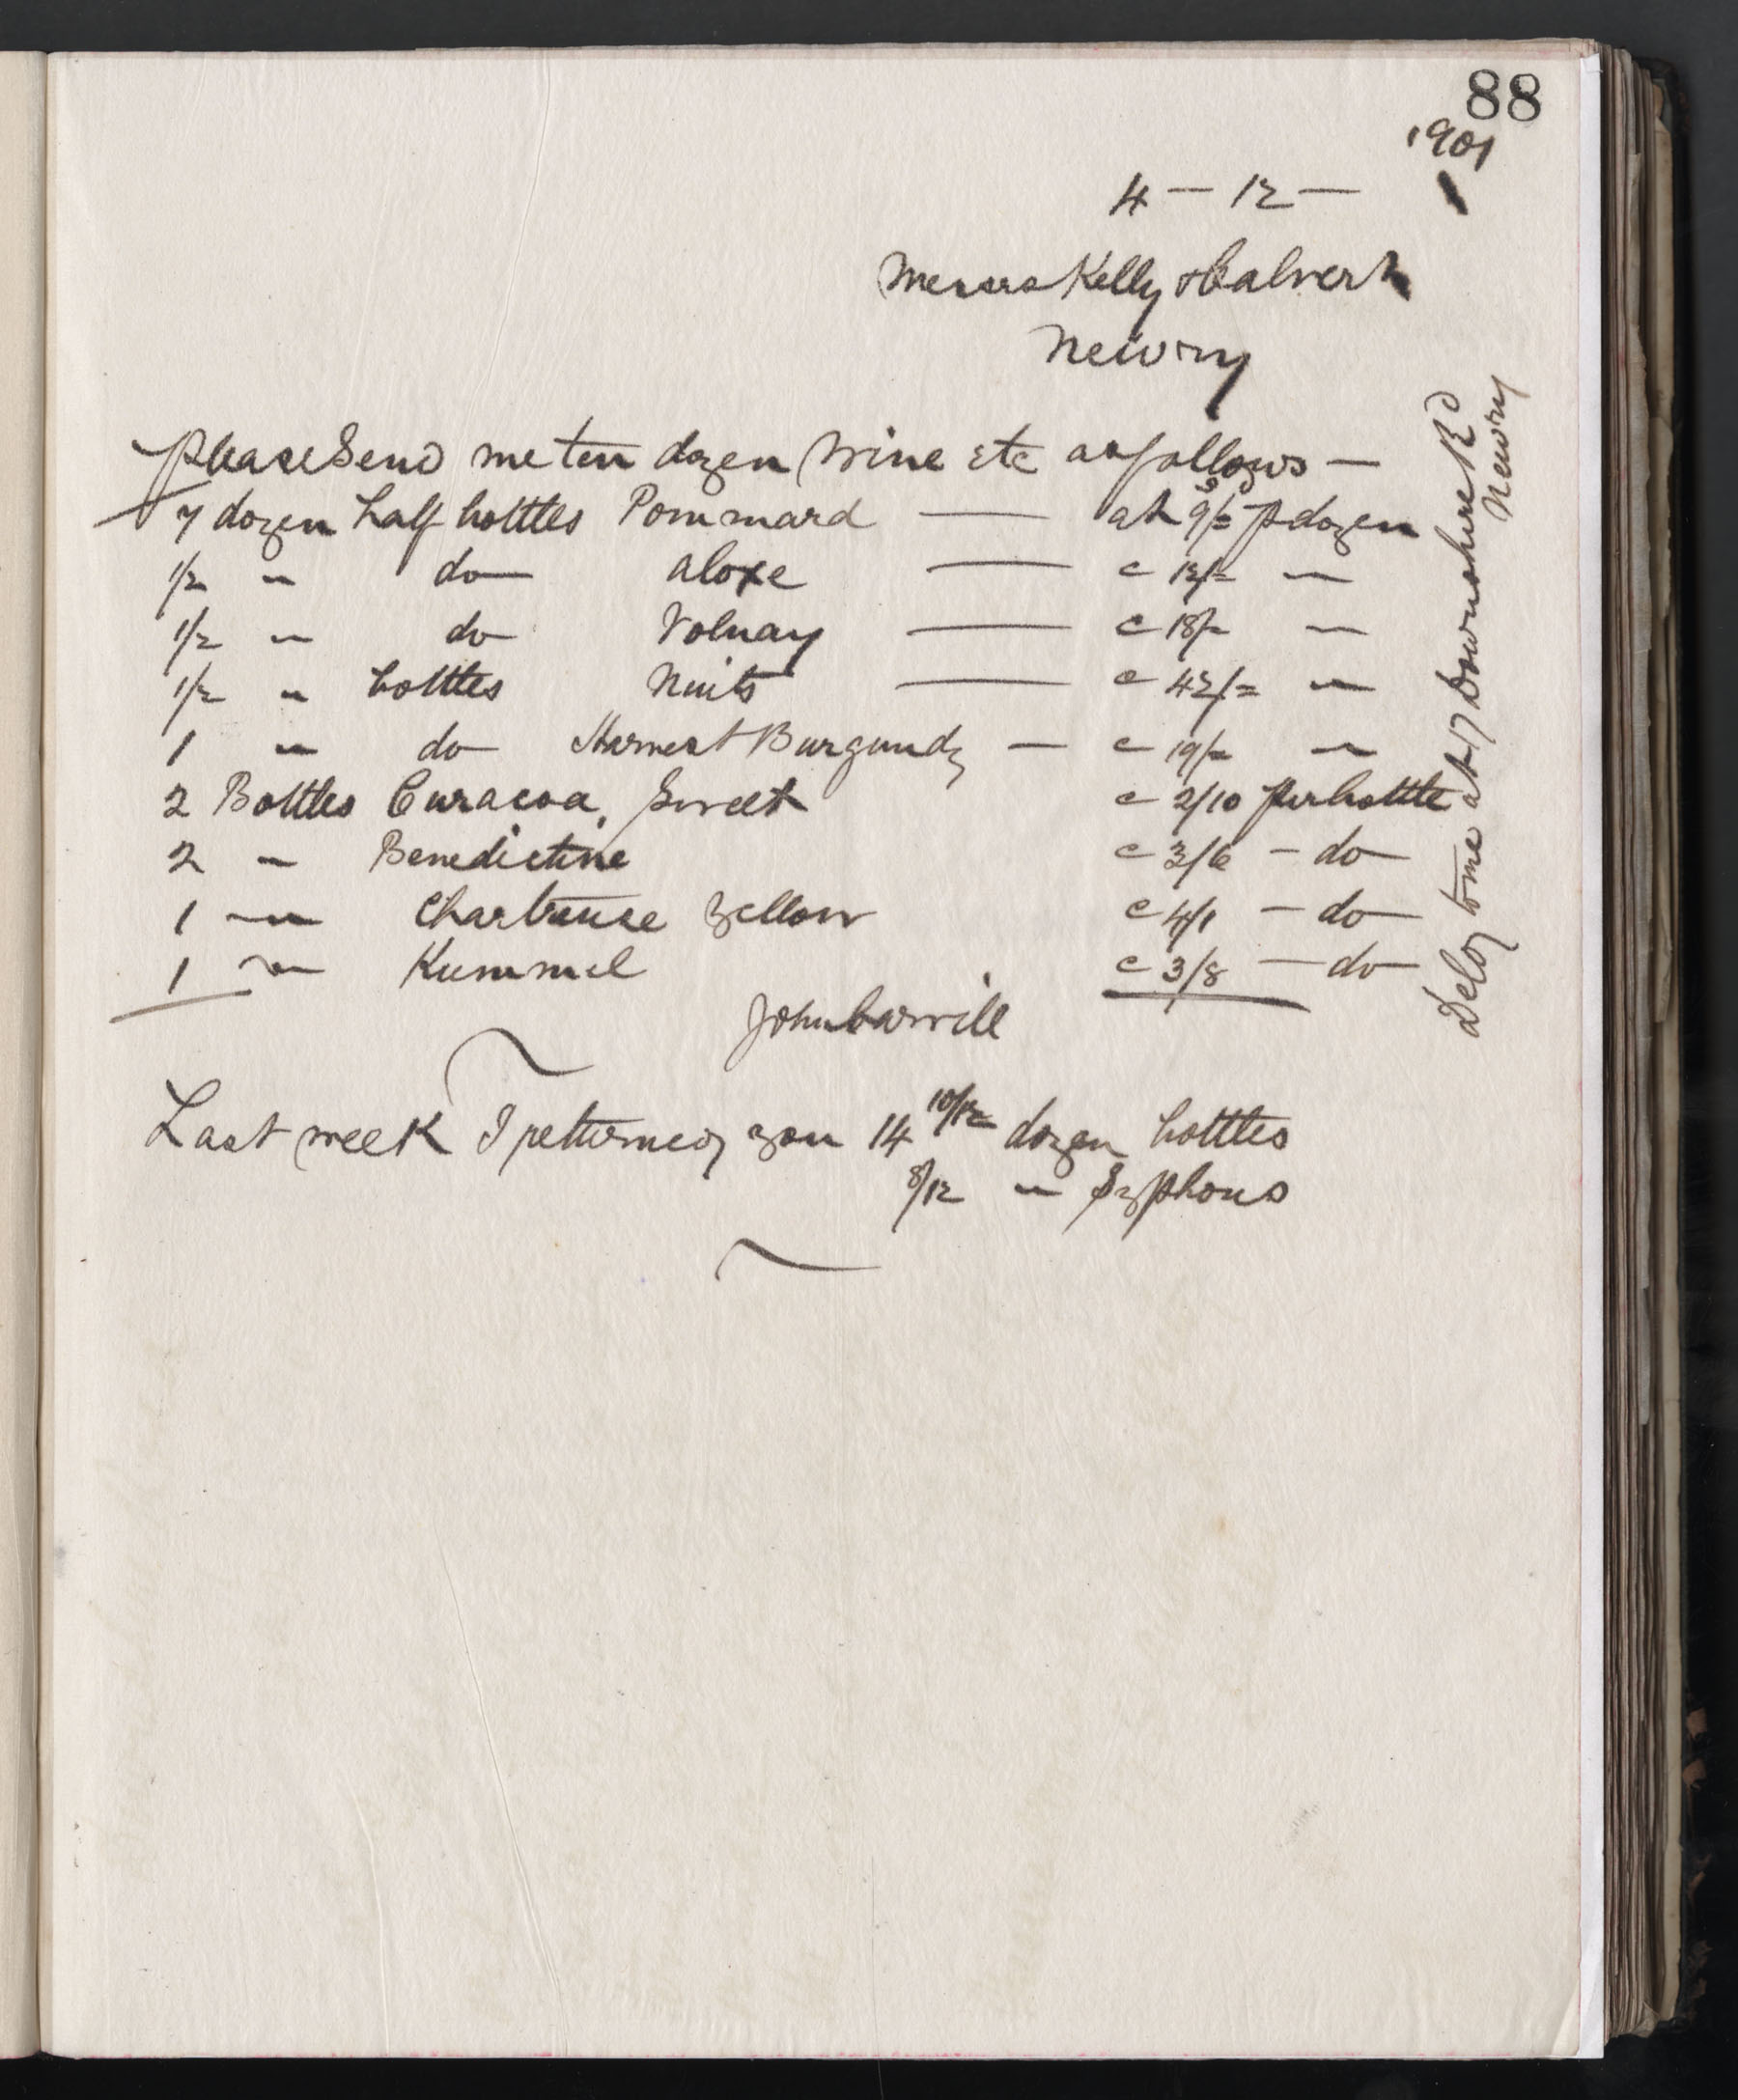 88
1901
4 — 12 — 1
Messrs Kelly & Calvert
Newry
Please Send me ten dozen Wine etc as follows —
7 dozen half bottles Pommard — at 9/= p dozen
1/2 " do Aloxe — @ 12/= "
1/2 " do Volnay — @ 18/= "
1/2 " bottles Nuits — @ 42/= "
1 " do Harvest Burgundy — @ 19/= "
2 Bottles Curacoa, Sweet @ 2/10 per bottle
2 " Benedictine @ 3/6 — do
1 " Chartreuse Yellow @ 4/1 — do
1 " Kummel @ 3/8 — do
John Carvill
Last week I returned you 14 10/12 dozen bottles
8/12 " Syphons
Delv to me at 7 Downshire Rd
Newry